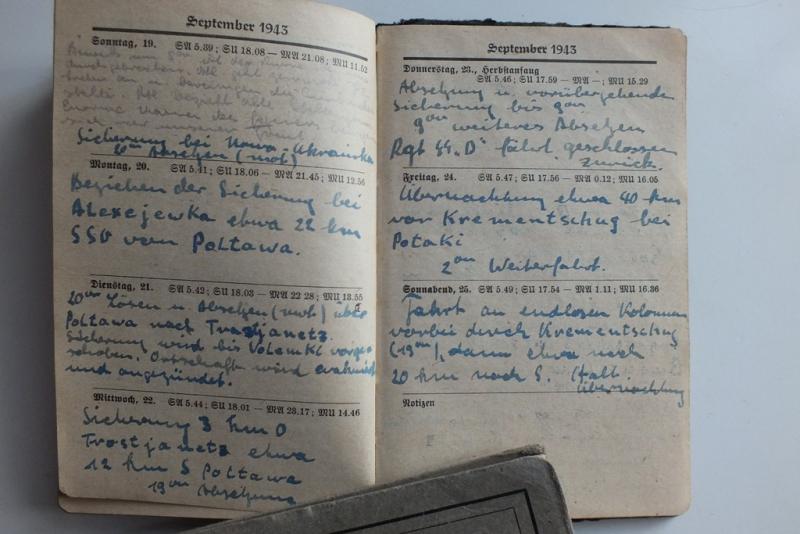 September 1943
Sonntag, 19. SA 5.39; SU 18.08 — MA 21.08; MU 11.52
Sicherung bei Nowa-Ukrainka
20⁰⁰ Absetzen (mot)
Montag, 20. SA 5.41; SU 18.06 — MA 21.45; MU 12.56
Beziehen der Sicherung bei
Alexejewka etwa 22 km
SSO von Poltawa.
Dienstag, 21. SA 5.42; SU 18.03 — MA 22 28; MU 13.55
20⁰⁰ Lösen u. Absetzen (mot) über
Poltawa nach Trostjanetz.
Sicherung wird bis Wolemki vorge-
schoben. Ortschaft wird evakuiert
und angezündet.
Mittwoch, 22. SA 5.44; SU 18.01 — MA 23.17; MU 14.46
Sicherung 3 km O
Trostjanetz etwa
12 km S Poltawa
19⁰⁰ Absetzung
September 1943
Donnerstag, 23., Herbstanfang
SA 5.46; SU 17.59 — MA —; MU 15.29
Absetzung u. vorübergehende
Sicherung bis 9⁰⁰
9⁰⁰ weiteres Absetzen
Rgt SS „D" fährt geschlossen
zurück.
Freitag, 24. SA 5.47; SU 17.56 — MA 0.12; MU 16.05
Übernachtung etwa 40 km
vor Krementschug bei
Potoki
2⁰⁰ Weiterfahrt.
Sonnabend, 25. SA 5.49; SU 17.54 — MA 1.11; MU 16.36
Fahrt an endlosen Kolonnen
vorbei durch Krementschug
(19⁰⁰), dann etwa noch
20 km nach S. Halt.
Übernachtung
Notizen